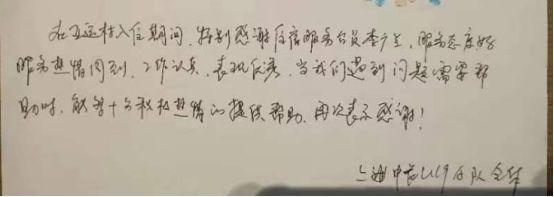 在亚运村入住期间,特别感谢住宿服务台员李广兰,服务态度好
服务热情周到,工作认真,表现优秀,当我们遇到问题需要帮
助时,能够十分积极热情的提供帮助,再次表示感谢!
上海中U19女队全体